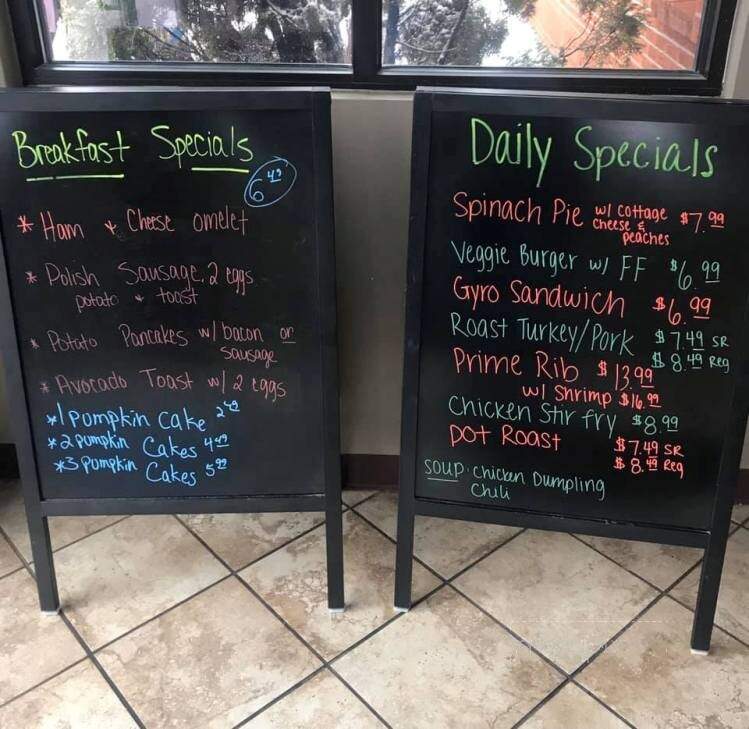 Breakfast Specials
6.49
* Ham & Cheese omelet
* Polish Sausage, 2 eggs
potato & toast
* Potato Pancakes w/ bacon or
sausage
* Avocado Toast w/ 2 eggs
*1 pumpkin cake 2.49
*2 pumpkin Cakes 4.49
*3 pumpkin Cakes 5.99
Daily Specials
Spinach Pie w/ cottage $7.99
cheese &
peaches
Veggie Burger w/ FF $6.99
Gyro Sandwich $6.99
Roast Turkey/Pork $7.49 SR
$8.49 Reg
Prime Rib $13.99
w/ Shrimp $16.99
Chicken Stir fry $8.99
Pot Roast $7.49 SR
$8.49 Reg
Soup: chicken Dumpling
Chili